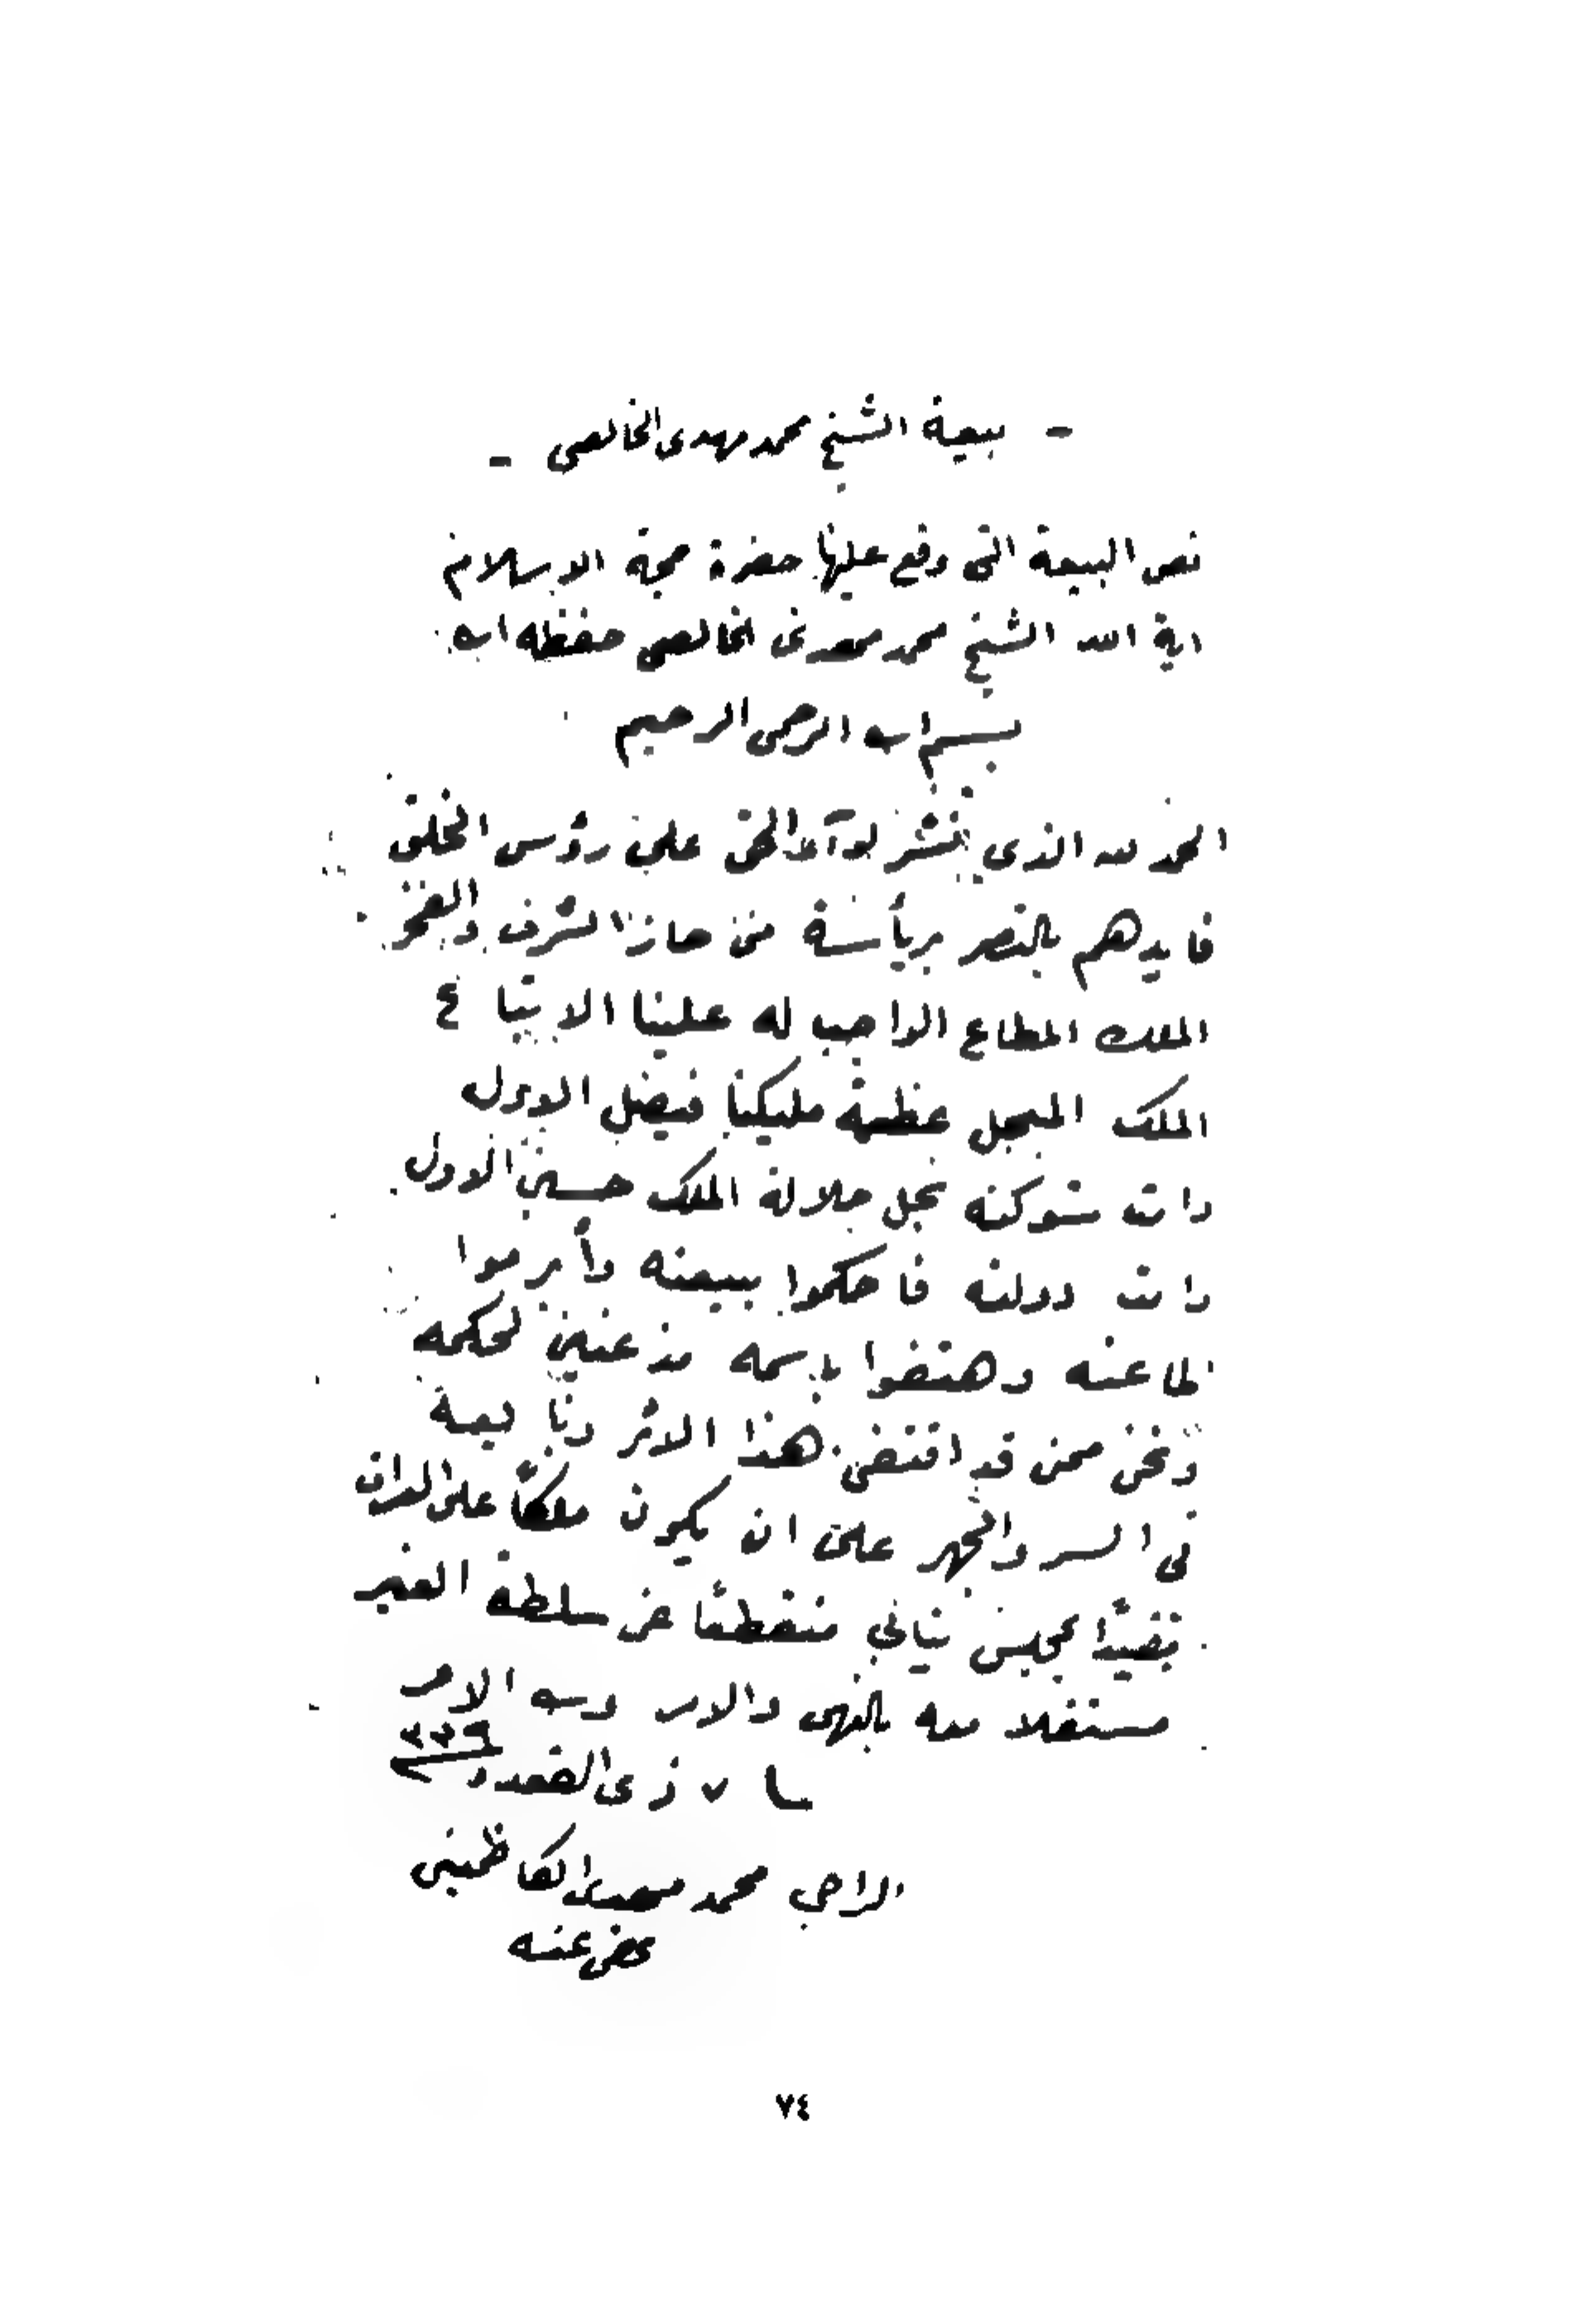 - بيعة الشيخ محمد مهدى الخالصى -
نص البيعة التى وقع عليها حضرة حجة الاسلام
اية الله الشيخ محمد مهدى الخالصى حفظه الله
بسم الله الرحمن الرحيم
الحمد لله الذى نشر لوآء الحق على رؤس الخلق
فايدهم بالنصر برئاسة من حاز الشرف والفخر
الملك المطاع الواجب له علينا الاتباع
الملك المبجل عظمة مليكنا فيصل الاول
دامت شوكته نجل جلالة الملك حسين الاول
دامت دولته فاحكموا بيعته وأبرموا
طاعته وهتفوا باسمه مذعنين لحكمه
ونحن ممن قد اقتضى هذا الاثر وبايعه
فى السر والجهر على ان يكون ملكاً على العراق
مقيداً بمجلس نيابي منقطعاً عن سلطة الغير
مستقلا معه بالنهى والامر ولله الامر
٧ ذى القعدة ١٣٣٩
الراجى محمد مهدى الكاظمينى
عفى عنه
٧٤